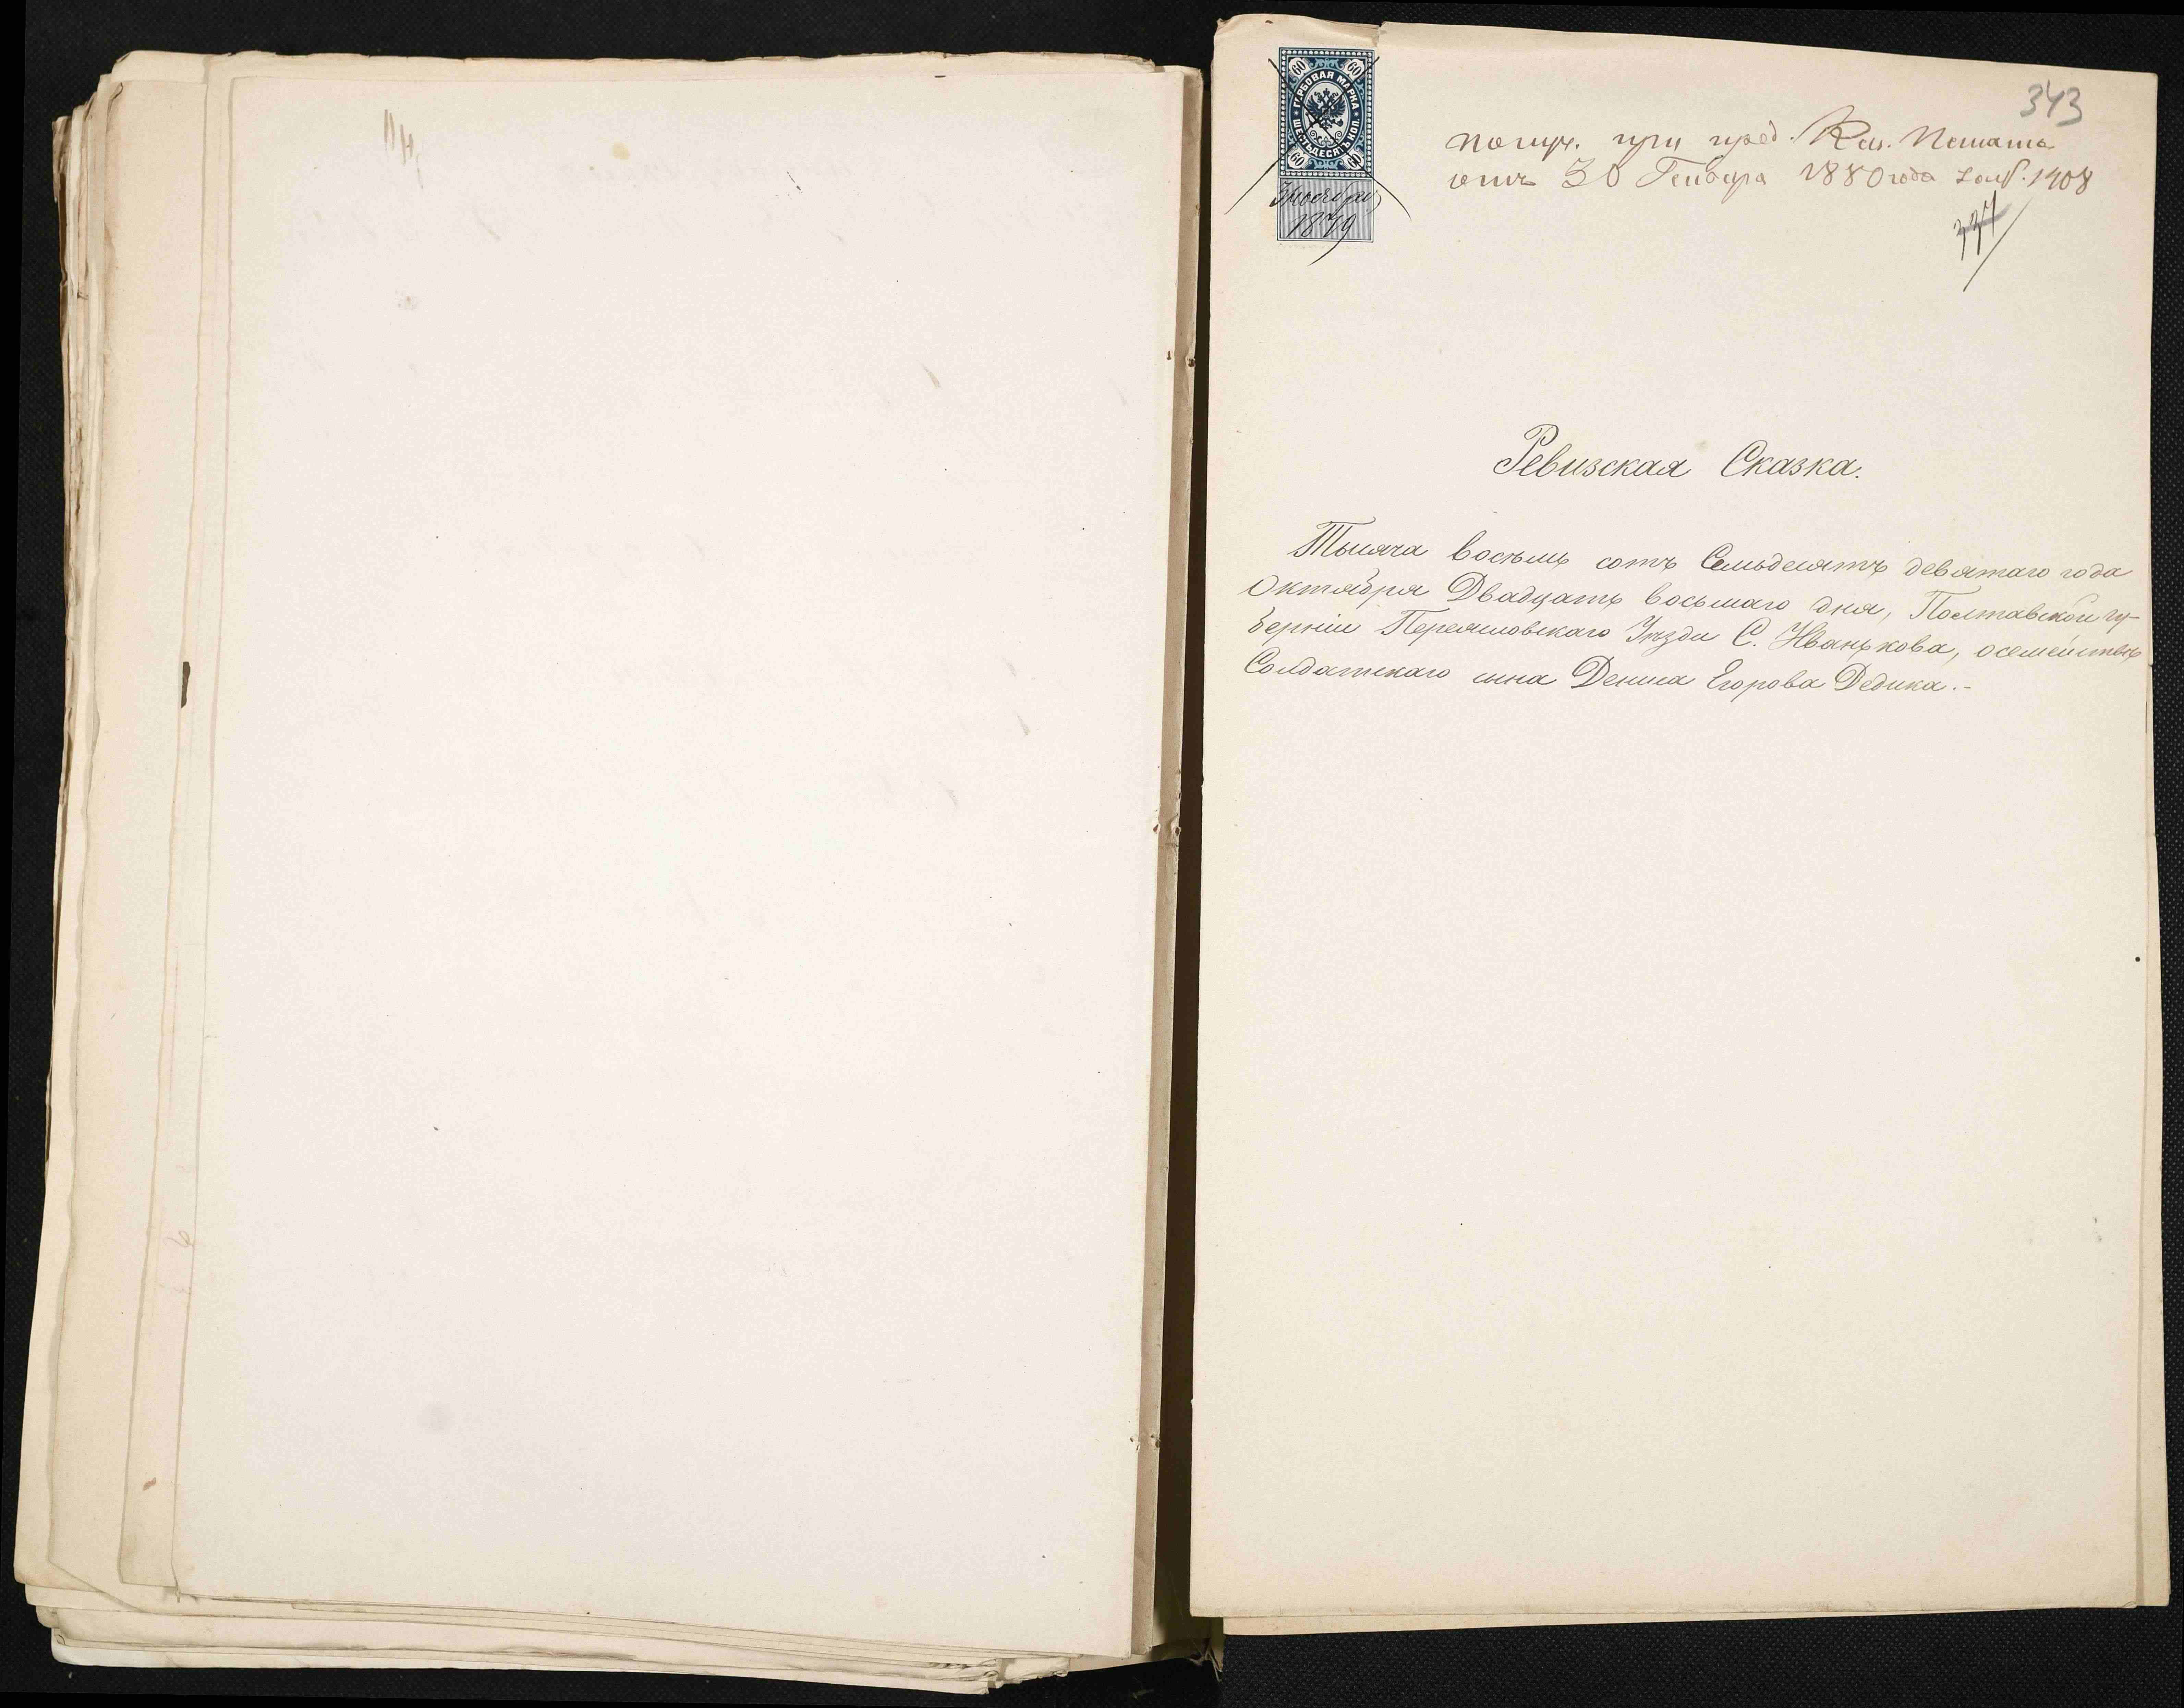 343
60 60
ГЕРБОВАЯ МАРКА
ШЕСТЬДЕСЯТЪ КОП.
60 60
3 Ноября
1879
получ. при пред. Каз. Палаты
отъ 30 Генваря 1880 года за № 1908
337
Ревизская Сказка.
Тысяча восемь сотъ Семьдесятъ девятаго года
Октября Двадцать восьмаго дня, Полтавской гу-
берніи Переяславскаго Уѣзда С. Иванькова, о семействѣ
Солдатскаго сына Дениса Егорова Дедика.-